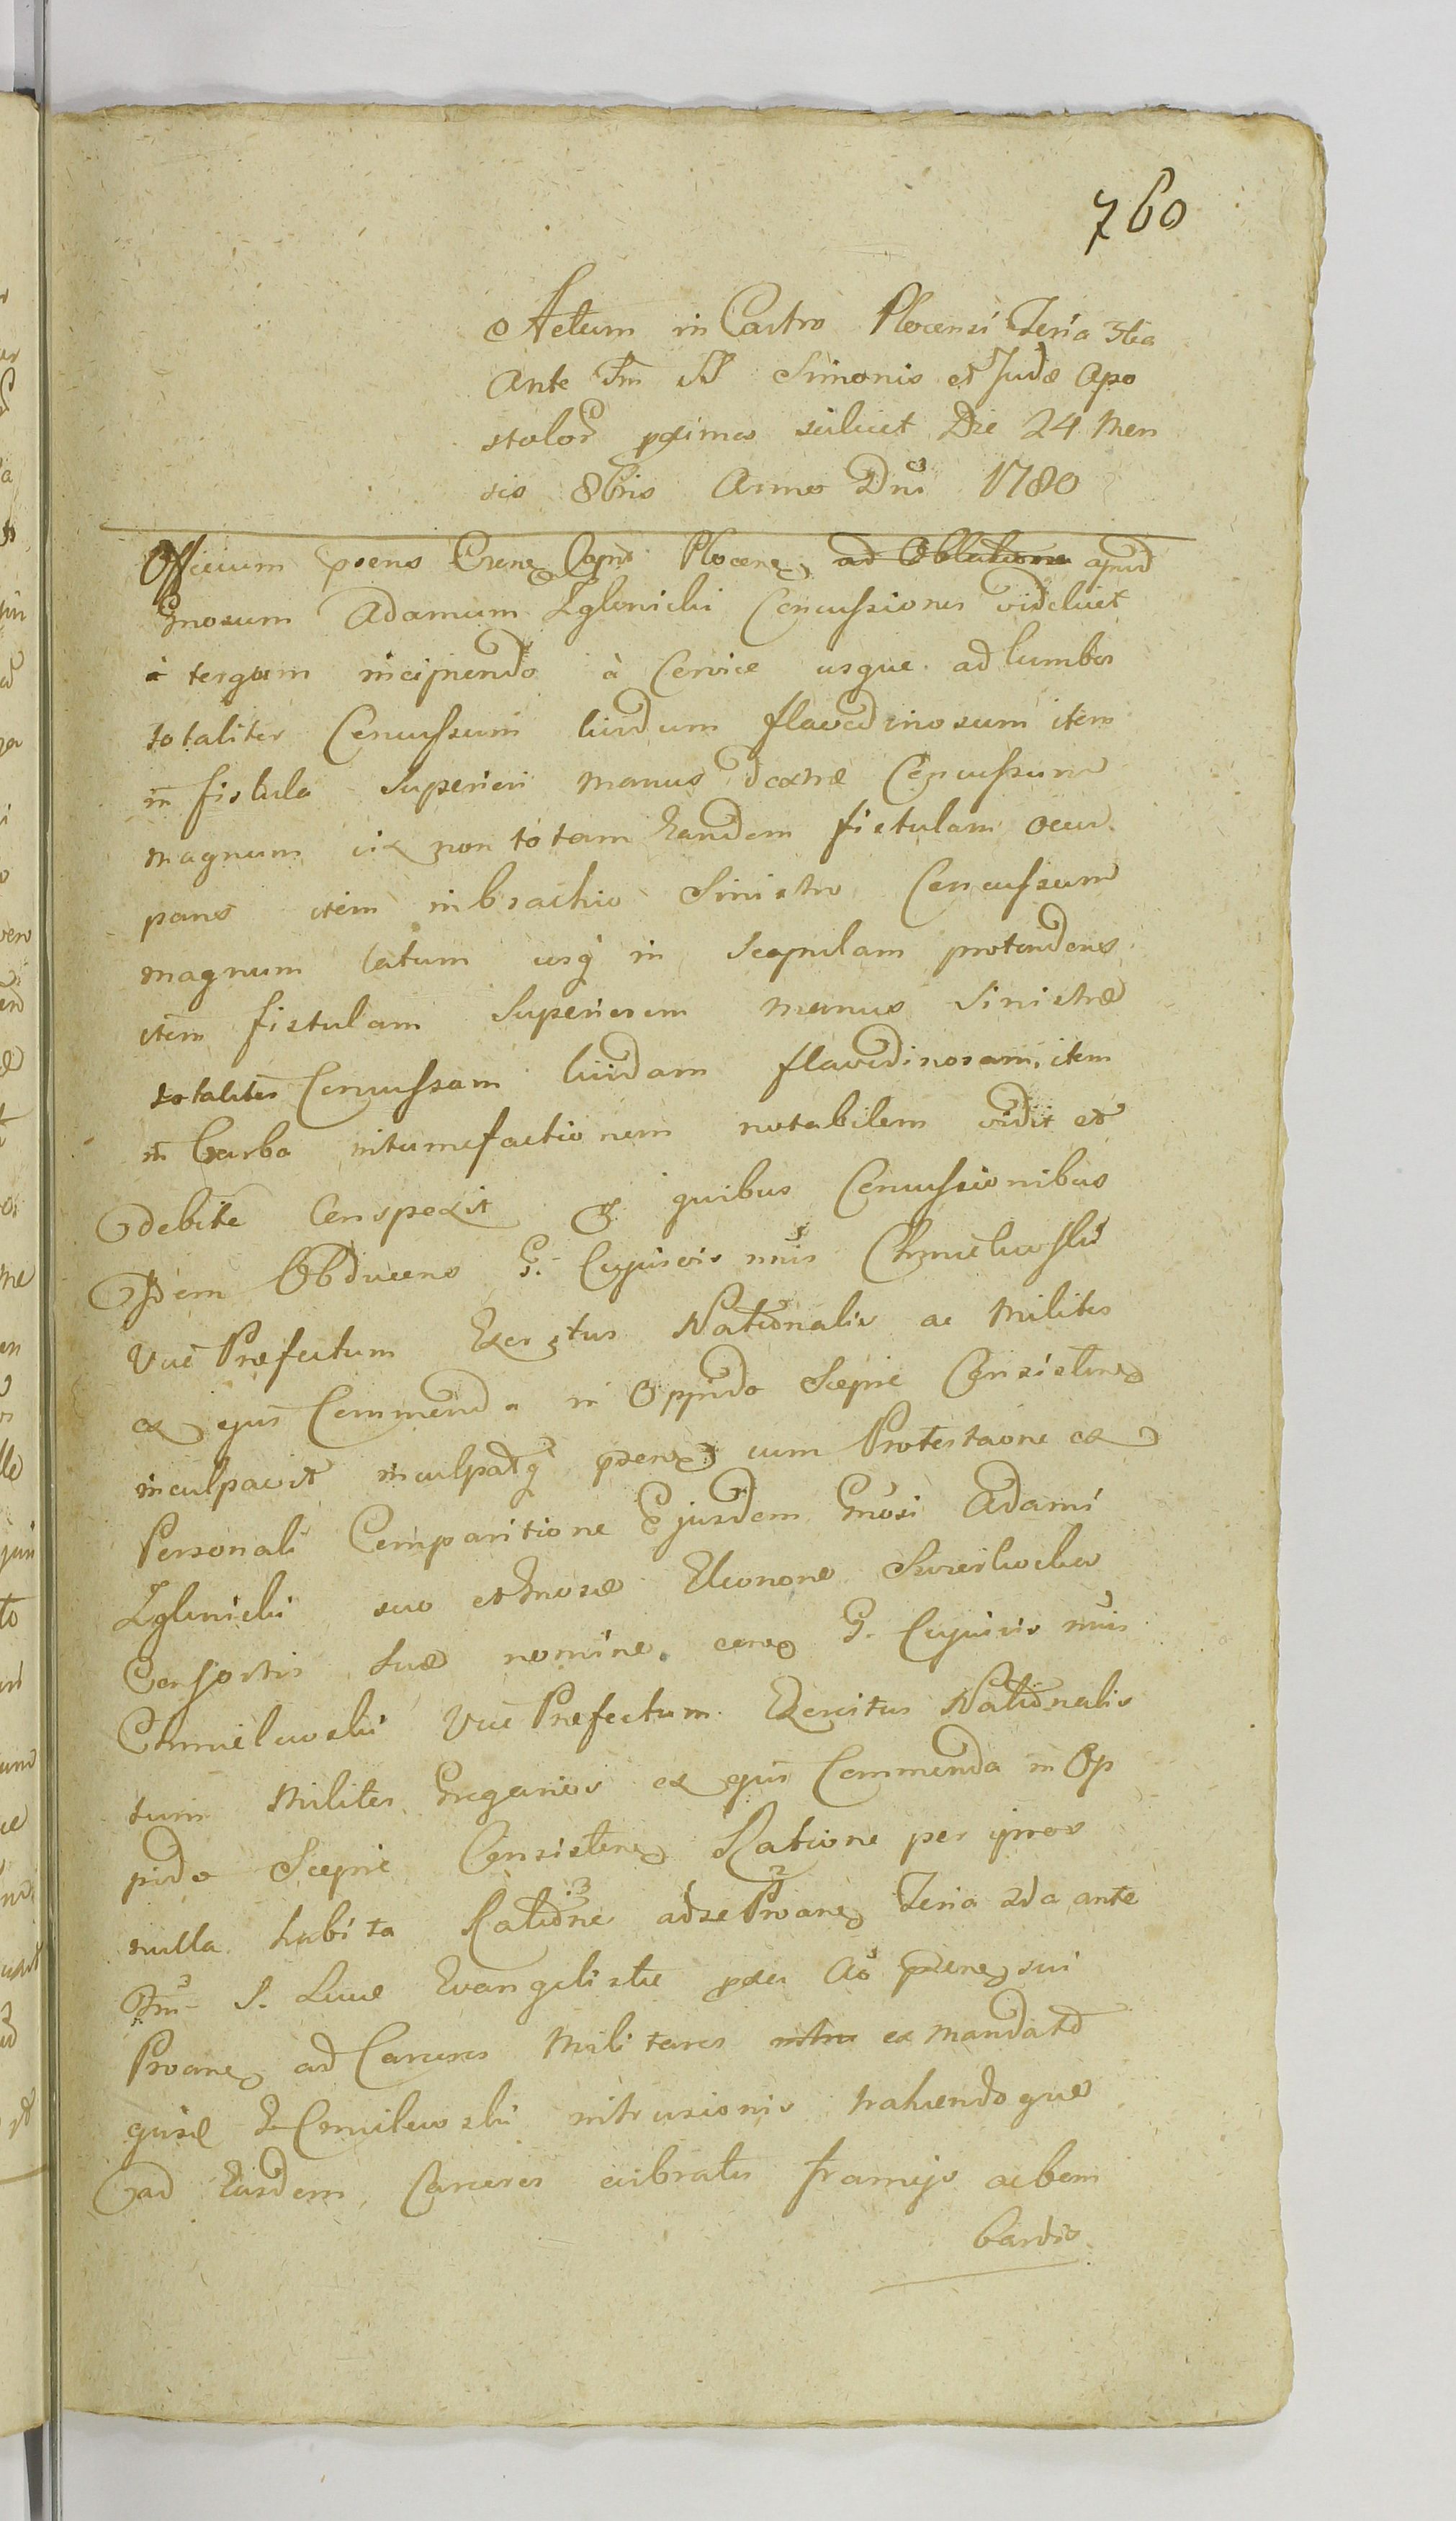 760
Actum in Castro Plocensi Feria 3tia
Ante Fm SS Simonis et Judæ Apo
stolor pximo scilicet Die 24 Men
sis 8bris Anno Dni 1780
Officium psens Crene Capit Plocen ad Oblatione apud
Gnosum Adamum Zglenicki Concussiones videlicet
à tergum incipiendo à Cervice usque ad lumbos
totaliter Concussum lividum flavedinosum item
in fistula Superiori manus dextræ Concussum
magnum vix non totam Eandem fistulam occu
pans item in brachio Sinistro Concussum
magnum latum usq in Scapulam protendens
item fistulam Superiorem manus Sinistræ
totaliter Concussam lividam flavedinosam, item
in barba intumefactionem notabilem vidit et
debite Conspexit quibus Concussionibus
Idem Obducens G. Cujusvis nuis Chmielewski
Vice Præfectum Exerctus Nationalis ac Milites
ex ejus Commenda in Oppido Sceprc Consisten
inculpavit inculpatq psen cum Protestaone ex
Personali Comparitione Ejusdem Gnosi Adami
Zglenicki suo et Gnosæ Eleonoræ
Consortis suæ nomine. G. Cujusvis nuis
Chmielewski Vice Præfectum Exercitus Nationalis
tum Milites Gregarios ex ejus Commenda in Op
pido Sceprc Consisten Ratione per ipsos
nulla habita Ratione adse Feria 2da ante
Fm S. Lucæ Evangelistæ Ao sui
ad Carceres Militares intru ex mandato
ejusd Chmilewski intrusionis trahendoque
ad Eosdem Carceres vibratis frameis ac bom
bardis